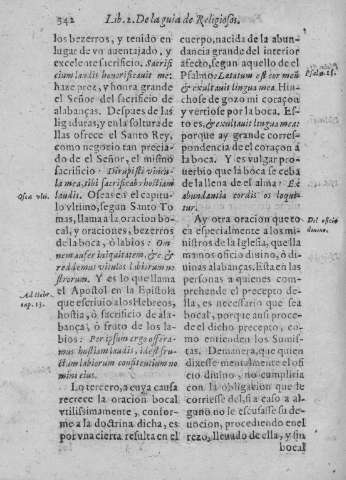 342 Lib. 2. De la guia de Religiosos.
los bezerros, y tenido en
lugar de vn auentajado, y
excelente sacrificio. Sacrifi
cium laudis honorificauit me:
haze prez, y honra grande
el Señor del sacrificio de
alabanças. Despues de las
ligaduras, y en la soltura de
llas ofrece el Santo Rey,
como negocio tan precia-
do de el Señor, el mismo
sacrificio: Dirupisti vincu-
la mea, tibi sacrificab: hostiam
laudis. Oseas en el capitu-
lo vltimo, segun Santo To
mas, llama a la oracion bo-
cal, y oraciones, bezerros
de la boca, ò labios: Om
nem aufer iniquitatem, & c. &
reddemus vitulos labiorum no
strorum. Y es lo que llama
el Apostol en la Epistola
que escriuio a los Hebreos,
hostia, ò sacrificio de ala-
bança, ò fruto de los la-
bios: Per ipsum ergo offera-
mus hostiam laudis, id est fru
ctum labiorum confitentium no
mini eius.
Lo tercero, a cuya causa
recrece la oracion bocal
vtilissimamente, confor-
me a la doctrina dicha, es
por vna cierta resulta en el
Osea vlti.
Ad Hebr.
cap. 13.
cuerpo, nacida de la abun-
dancia grande del interior
afecto, segun aquello de el
Psalmo: Lætatum est cor meũ
& exultauit lingua mea. Hin-
chose de gozo mi coraçon
y vertiose por la boca. Es-
to es, & exultauit lingua mea:
porque ay grande corres-
pondencia de el coraçon à
la boca. Y es vulgar pro-
uerbio que la boca se ceba
de la llena de el alma: Ex
abundantia cordis os loqui-
tur.
Ay otra oracion que to
ca especialmente a los mi-
nistros de la Iglesia, que lla
mamos oficio diuino, ò di
uinas alabanças. Esta en las
personas a quienes com-
prehende el precepto de-
lla, es necessario que sea
bocal, porque ansi proce-
de el dicho precepto, co-
mo entienden los Sumis-
tas. De manera, que quien
dixesse mentalmente el ofi
cio diuino, no cumpliria
con la obligacion que le
corriesse del, si a caso a al-
guno no le escusasse su de-
uocion, procediendo en el
rezo, lleuado de ella, y sin
bocal
Psalm. 15.
Del oficio
diuino.